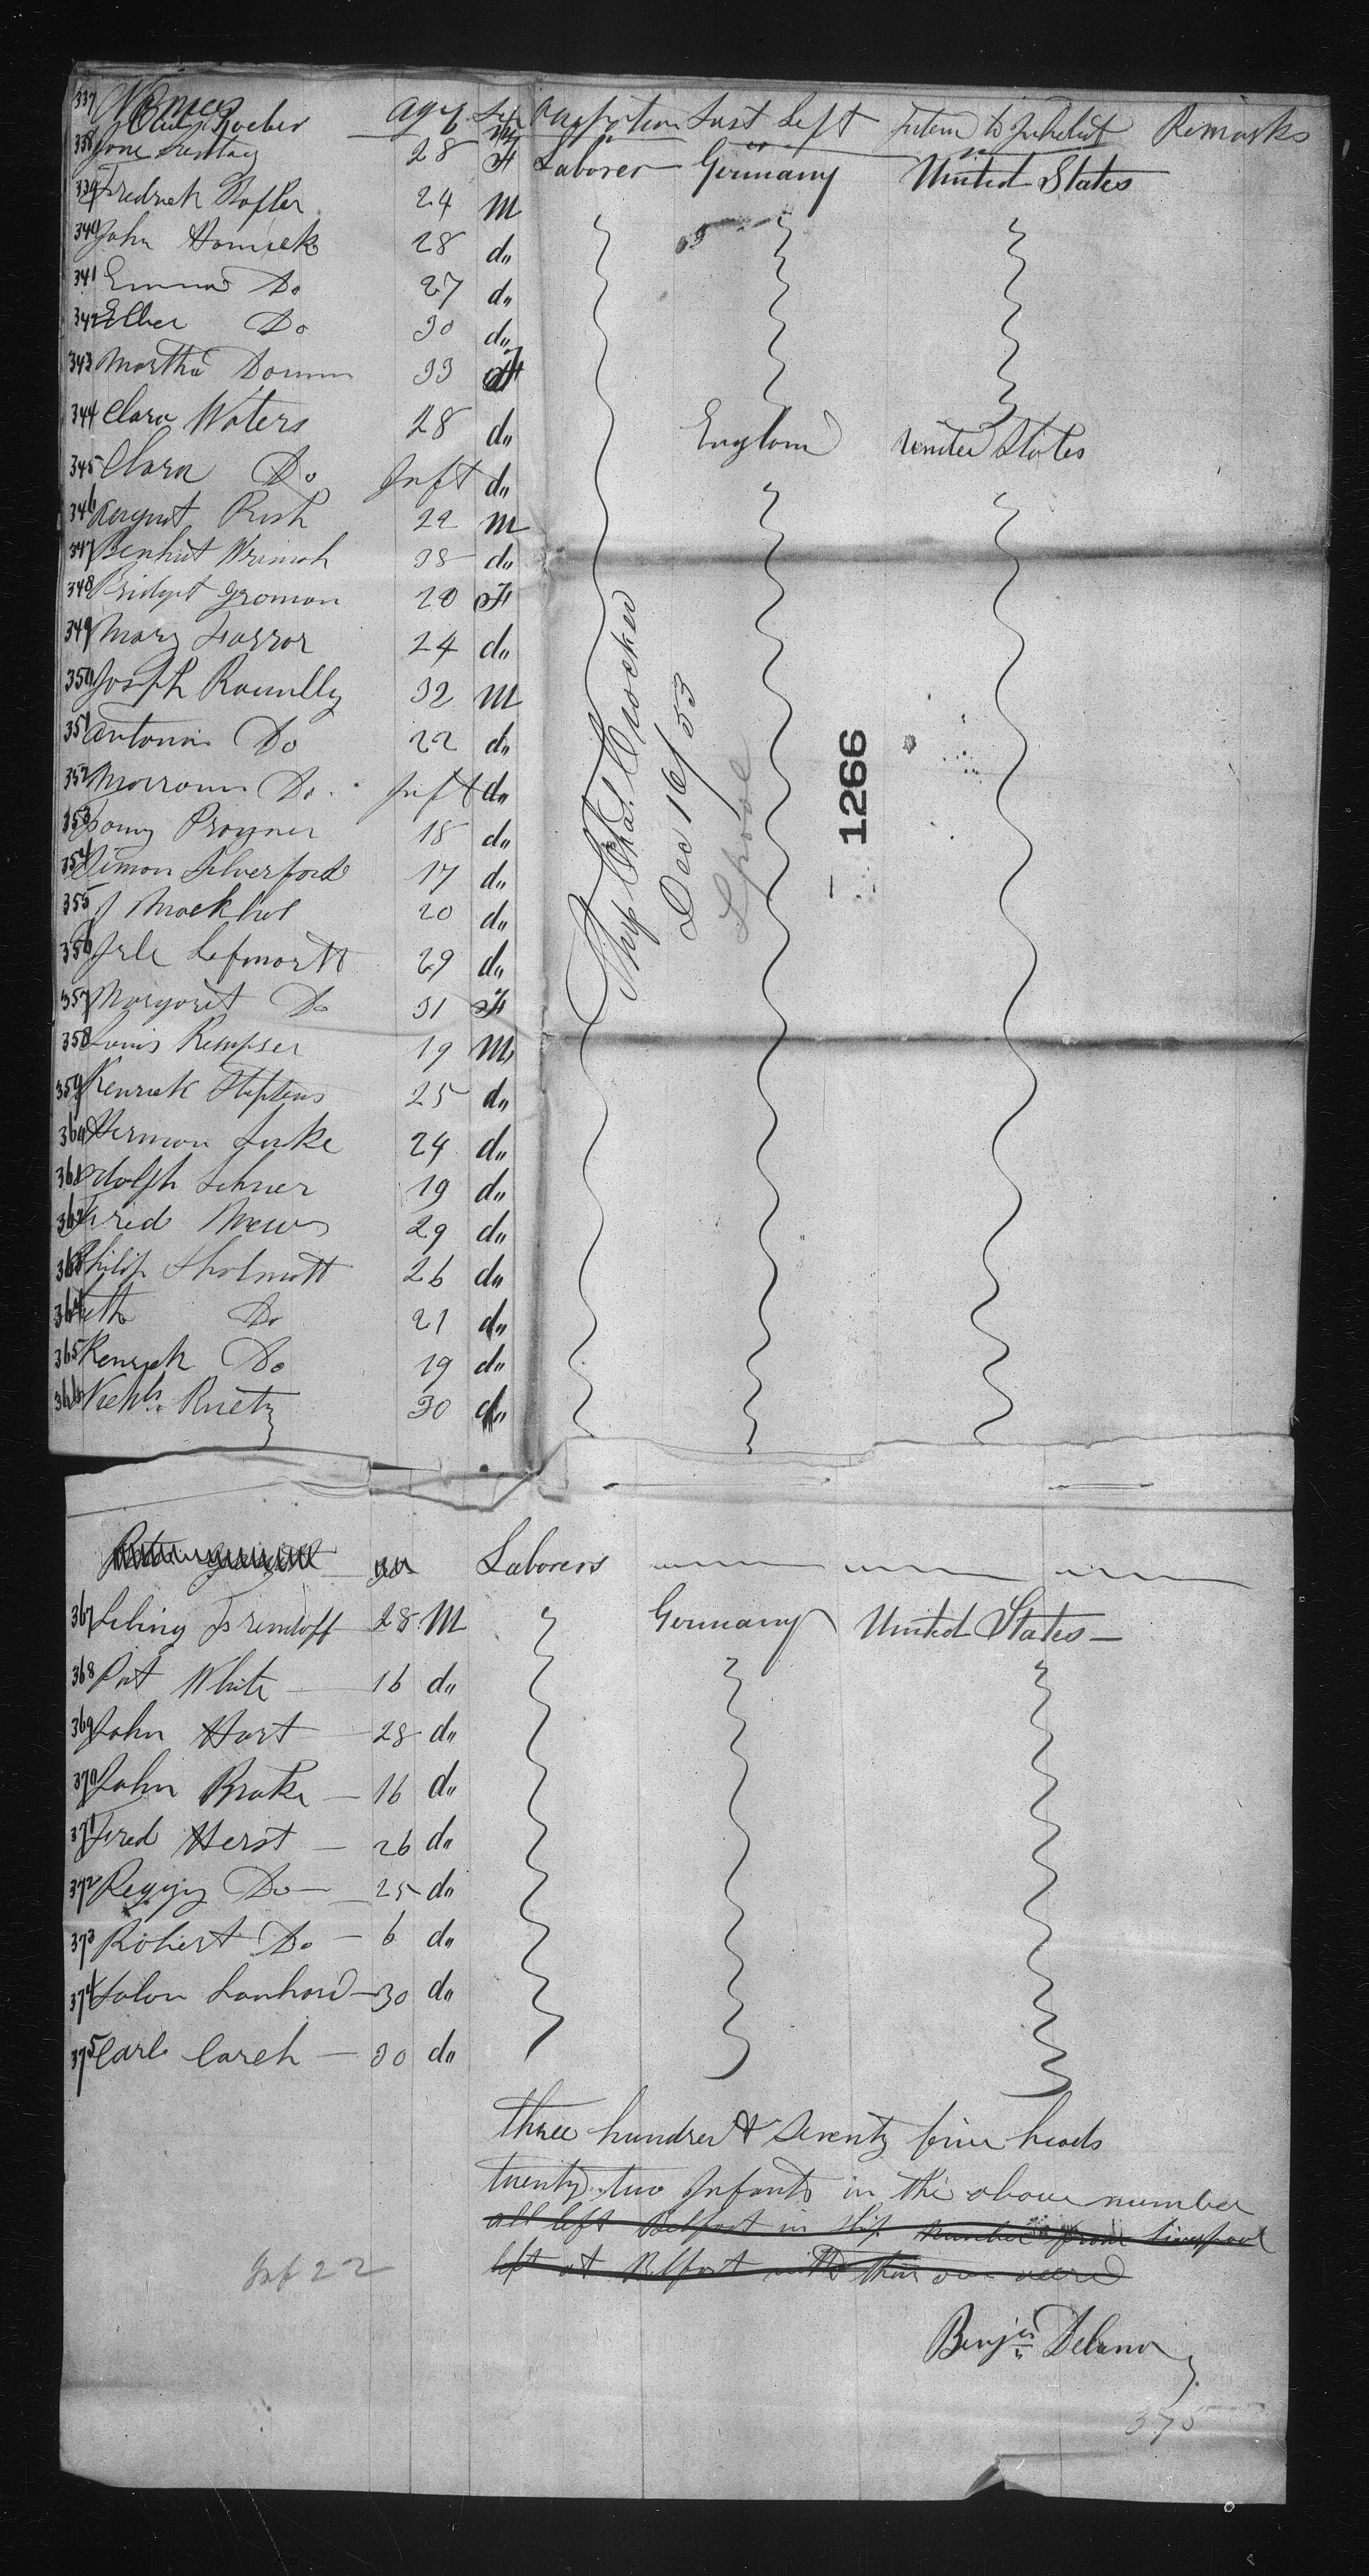 Names Age Sex Occupation Last Left Intend to Inhabit Remarks
337 Roeber 6
338 Jane 28 F Laborer Germany United States
339 Fredrick Hofler 24 M
340 John Homick 28 do
341 Emma Do 27 do
342 Ellen Do 30 do
343 Martha 33 F
344 Clara Waters 28 do England United States
345 Clara Do Inft do
346 August Rish 22 M
347 38 do
348 Bridget Groman 20 F
349 Mary Farror 24 do
350 Joseph Roumlly 32 M
351 Antonia Do 22 do
352 Do Inft do
353 18 do
354 Simon Silverford 17 do
355 J Mackhol 20 do
356 29 do
357 Margaret Do 31 F
358 Louis Rempser 19 M
359 Henrick Stephens 25 do
360 Herman Luke 24 do
361 Adolph Lehner 19 do
362 Fred Mews 29 do
363 Philip Sholmott 26 do
364 Do 21 do
365 Do 19 do
366 Ruetz 30 do
Ship Chas. Crocker
Dec 16/53
Lpool
1266
Laborers
367 28 M Germany United States
368 Pat White 16 do
369 John Hart 28 do
370 John Brake 16 do
371 Fred Herst 26 do
372 Peggy Do 25 do
373 Robert Do 6 do
374 30 do
375 Carl Carch 30 do
three hundred & Seventy five heads
twenty two Infants in the above number
all left Belfast in Ship number from Liverpool
left at Belfast with their own
Inf 22
Benjn Delano
375